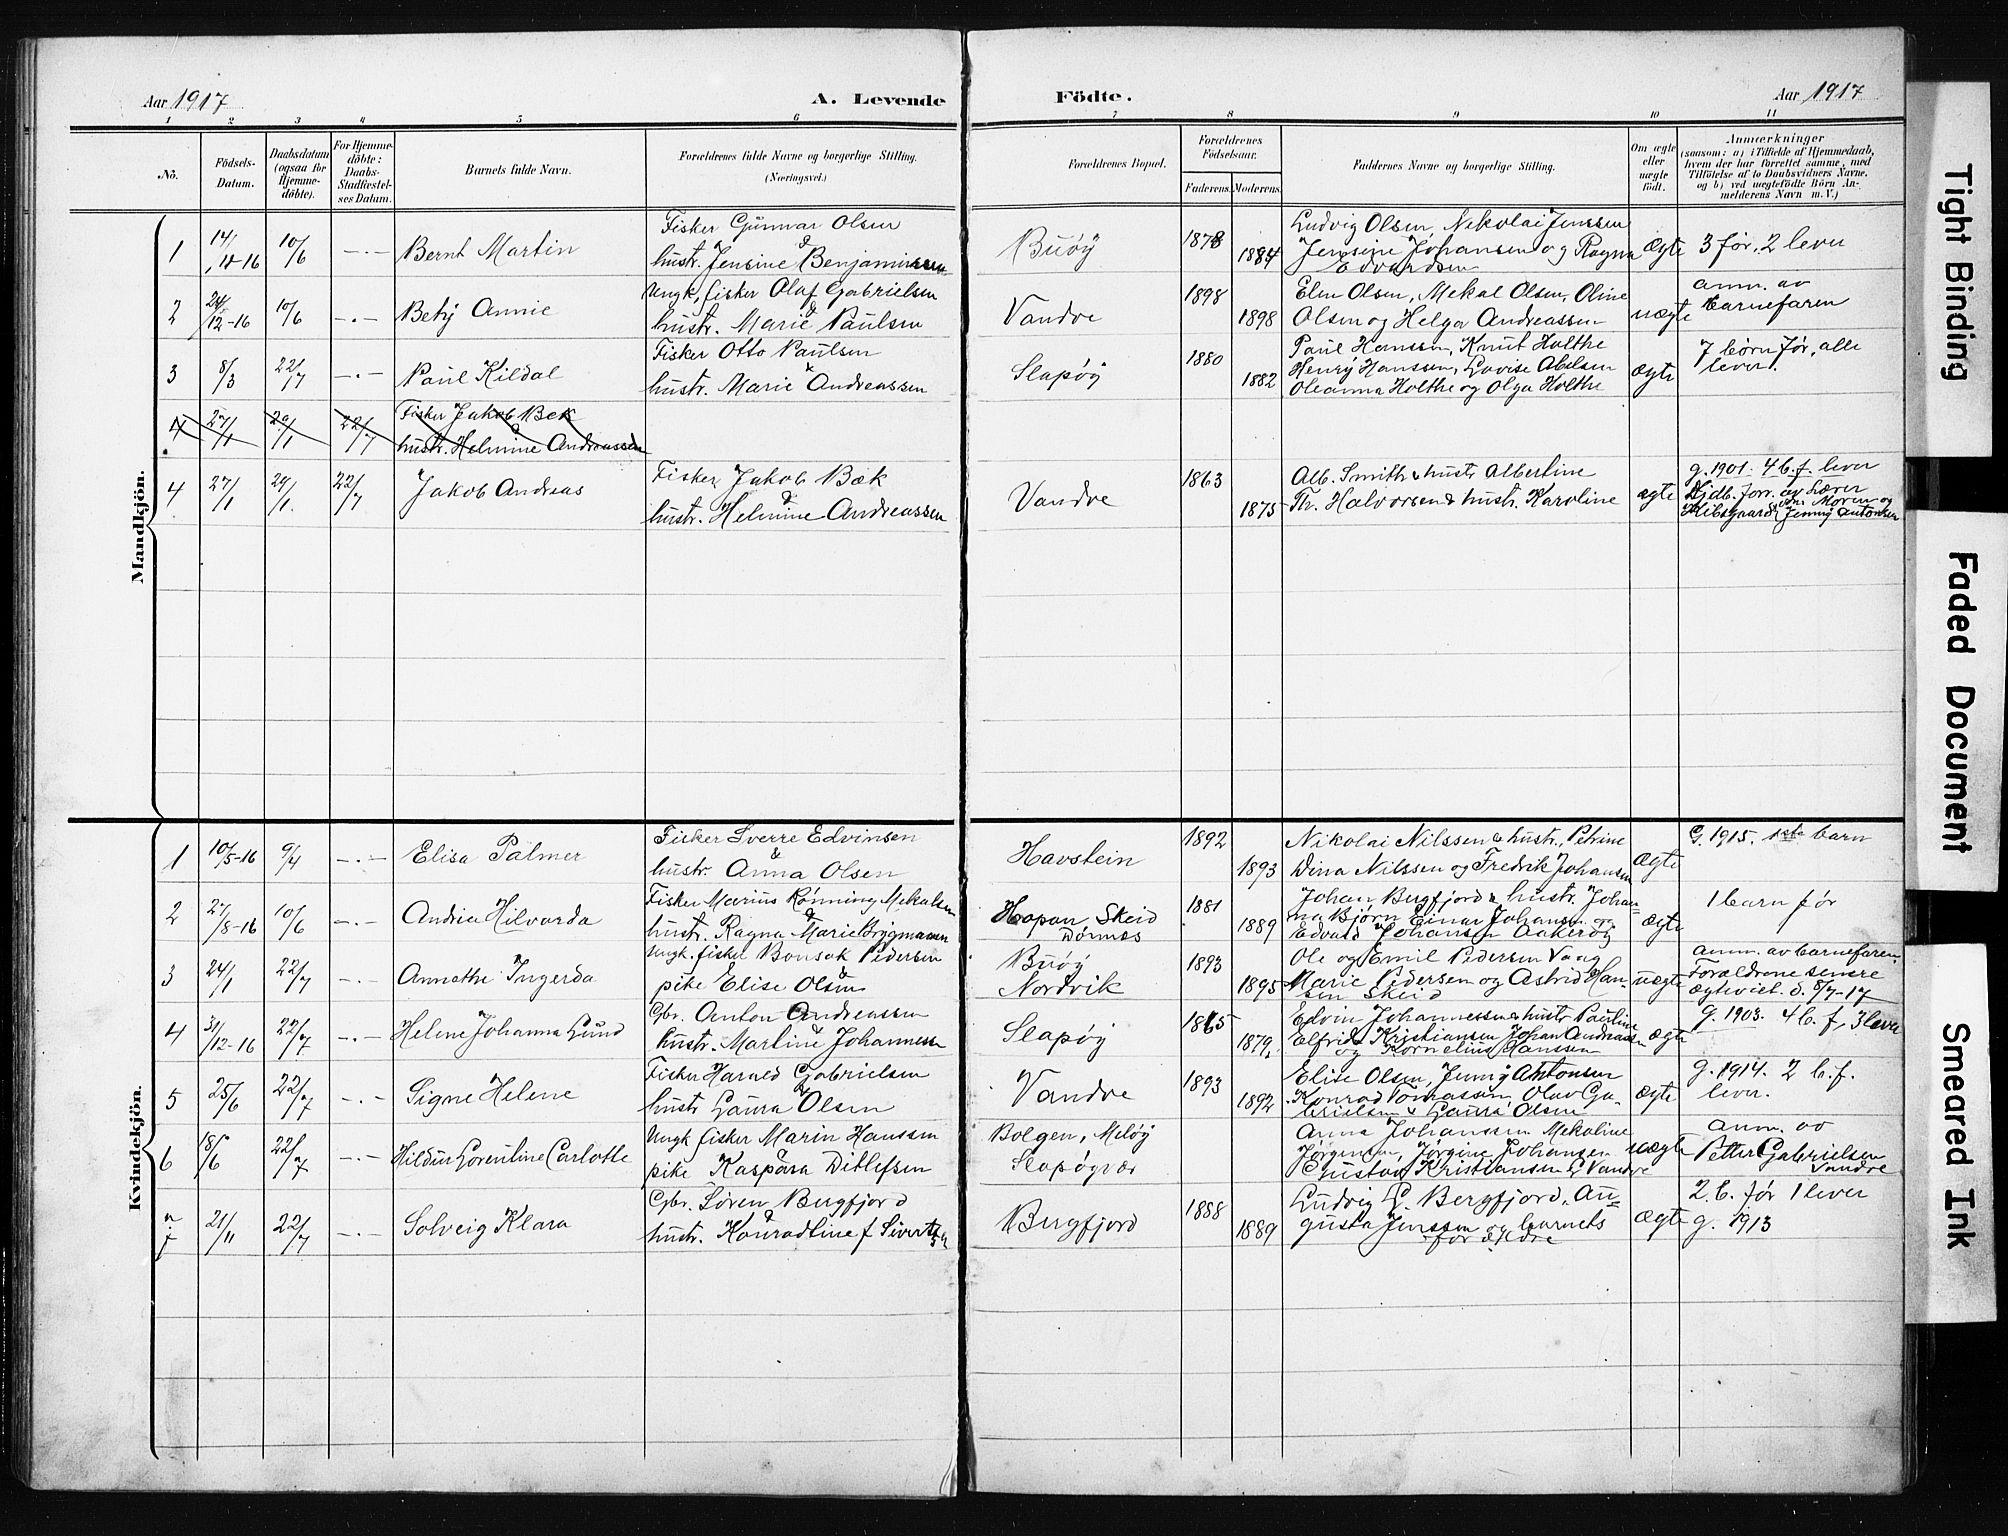 Aar 1917
A. Levende
Födte.
Aar 1917
1 2 3 4 5 6 7 8 9 10 11
No.
Födsels-Datum.
Daabsdatum (ogsaa for Hjemme-döbte).
For Hjemme-döbte: Daabs-Stadfæstel-ses Datum.
Barnets fulde Navn.
Forældrenes fulde Navne og borgerlige Stilling. (Næringsvei.)
Forældrenes Bopæl.
Forældrenes Födselsaar.
Faderens. Moderens.
Faddernes Navne og borgerlige Stilling.
Om ægte eller uægte födt.
Anmærkninger (saasom: a) i Tilfælde af Hjemmedaab, hvem der har forrettet samme, med Tilföielse af to Daabsvidners Navne. og b) ved uægtefödte Börn An-melderens Navn m. V.)
Mandkjön.
1 14/10-16 10/6 -"- Bernt Martin
Fisker Gunnar Olsen & hustr. Jensine Benjaminsen
Buøy 1878 1884
Ludvig Olsen, Nikolai Jenssen
Jensine Johansen og Ragna
Edvardsen
Ægte
3 før, 2 lever
2 24/12-16 10/6 -"- Betzy Annie
Ungk, fisker Olaf Gabrielsen & hustr. Marie Paulsen
Vandve 1898 1898
Elen Olsen, Mekal Olsen, Oline
Olsen og Helga Andreassen
uægte
anm. av
barnefaren
3 8/3 22/7 -"- Paul Kildal
Fisker Otto Paulsen & hustr. Marie Andreassen
Slapøy 1880 1882
Paul Hanssen, Knut Holthe
Henry Hanssen, Lovise Abelsen
Oleanna Holthe og Olga Holthe
ægte
7 børn før, alle
lever.
4 27/1 29/1 22/7 Fisker Jakob Bek & hustr. Helmine Andreassen
4 27/1 29/1. 22/7 Jakob Andreas
Fisker Jakob Bæk & hustr. Helmine Andreassen
Vandve 1863 1875
Alb. Smith & hustr Albertine
Th. Halvorsen & hustr. Karoline
ægte
g. 1901. 4 b. f. lever
Hjdb. forr. av Lærer
Moren og
Jenny Antonsen
Kvindekjön.
1 10/5-16 9/4 -"- Elisa Palmer
Fisker Sverre Edvinsen & hustr. Anna Olsen
Havstein 1892 1893
Nikolai Nilssen & hustr. Petrine
Dina Nilssen og Fredrik Johansen
ægte
G. 1915. 1ste barn
2 27/8-16 10/6 -"- Andrea Hilvarda
Fisker Marius Rønning Mekalsen & hustr. Ragna Marie Brygmann
Hopan Skeid
Dønnes
1881 1889
Johan Bergfjord & hustr. Johan-
na Bjørn Einar Johansen og
Edvard Johansen Aakerøy
ægte
1 barn før
3 24/1 22/7 -"- Annethe Ingerda
Ungk. fisker Bonsak Pedersen & pike Elise Olsen
Buøy
Nordvik
1893 1895
Ole og Emil Pedersen Vaag
Marie Pedersen og Astrid Han-
sen Skeid
uægte
anm. av barnefaren.
Forældrene senere
ægteviet. d. 8/7-17
4 31/12-16 22/7 -"- Helene Johanna Lund
Gbr. Anton Andreassen & hustr. Martine Johannessen
Slapøy 1865 1879.
Edvin Johannessen & hustr Pauline
Elfrida Kristiansen Johan Andreassen
og Kornelius Hanssen
ægte
g. 1903. 4 b. f, 3 lever
5 25/6 22/7 -"- Signe Helene
Fisker Harald Gabrielsen & hustr Laura Olsen
Vandve 1893 1892
Elise Olsen, Jenny Antonsen
Konrad Tomassen, Olav Ga-
brielsen & Laura Olsen
ægte
g. 1914. 2 b. f.
lever.
6 18/6 22/7 -"- Hildur Lorentine Carlotte
Ungk fisker Marin Hanssen
pike Kaspara Ditlefsen
Bolgen, Meløy
Slapøyvær
Anna Johanssen Mekaline
Jørgensen, Jørgine Johansen
Gustav Kristiansen & Vandve
uægte
anm. av
Petter Gabrielsen
Vandve
7 21/11 22/7 Solveig Klara
Gbr. Søren Bergfjord & hustr. Konradline f Sivertsen
Bergfjord 1888 1889
Ludvig L. Bergfjord, Au-
gusta Jenssen og barnets
forældre
ægte
2. b. før 1 lever
g. 1913
Tight Binding
Faded Document
Smeared Ink